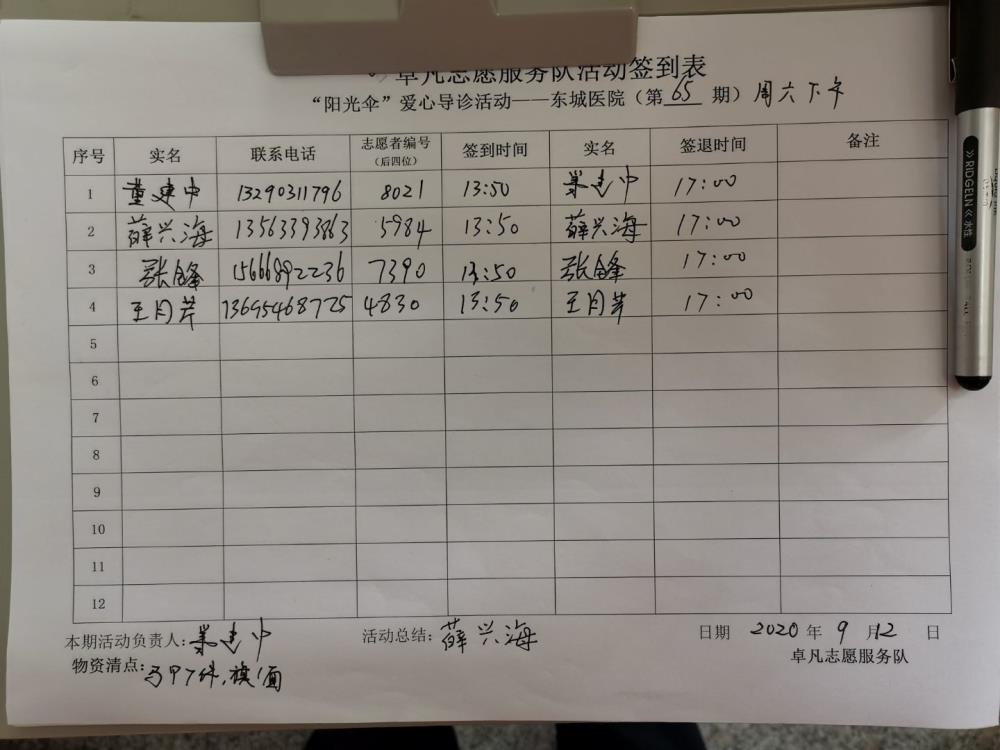 卓凡志愿服务队活动签到表
“阳光伞”爱心导诊活动——东城医院（第65期）周六下午
序号 实名 联系电话 志愿者编号（后四位） 签到时间 实名 签退时间 备注
1 董建中 13290311796 8021 13:50 建中 17:00
2 薛兴海 13563393863 5984 13:50 薛兴海 17:00
3 张锋 15666892236 7390 13:50 张锋 17:00
4 王月芹 13695468725 4830 13:50 王月芹 17:00
5
6
7
8
9
10
11
12
本期活动负责人：建中 活动总结：薛兴海 日期 2020年9月12日
物资清点：马甲7件，旗1面 卓凡志愿服务队
RIDGELN 水性